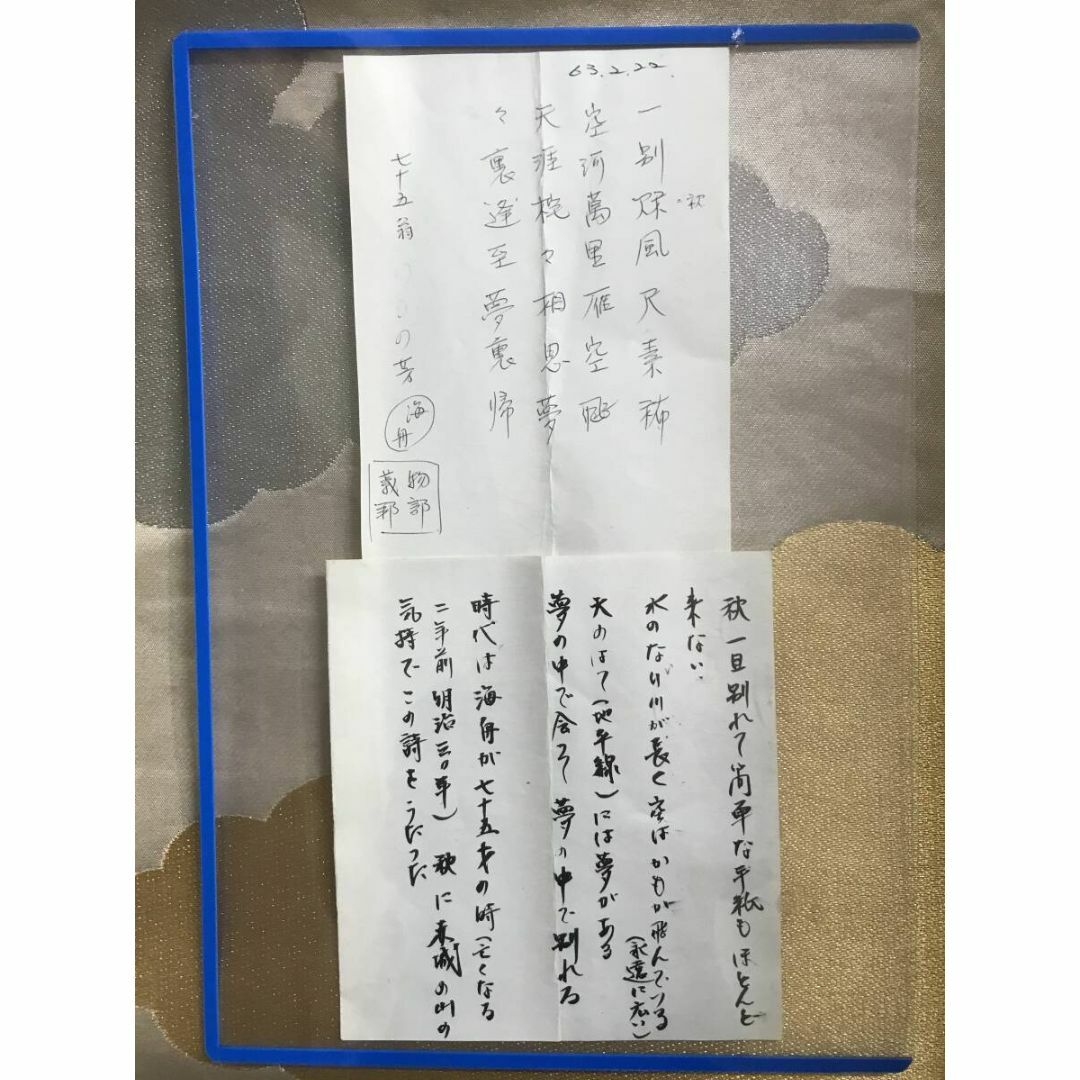 63.2.22.
一別 風尺素稀
・秋
空河萬里雁空飛
天涯 々相思夢
々裏逢至夢裏帰
七十五翁 の
海舟
物部
義邦
秋一旦別れて簡単な手紙もほとんど
来ない、
水のない川が長く空はかもが飛んでいる
(永遠に広い)
天のはて(地平線)には夢がある
夢の中で会って夢の中で別れる
時代は海舟が七十五才の時(亡くなる
二年前明治三〇年)秋に赤城の山の
気持でこの詩をうたった